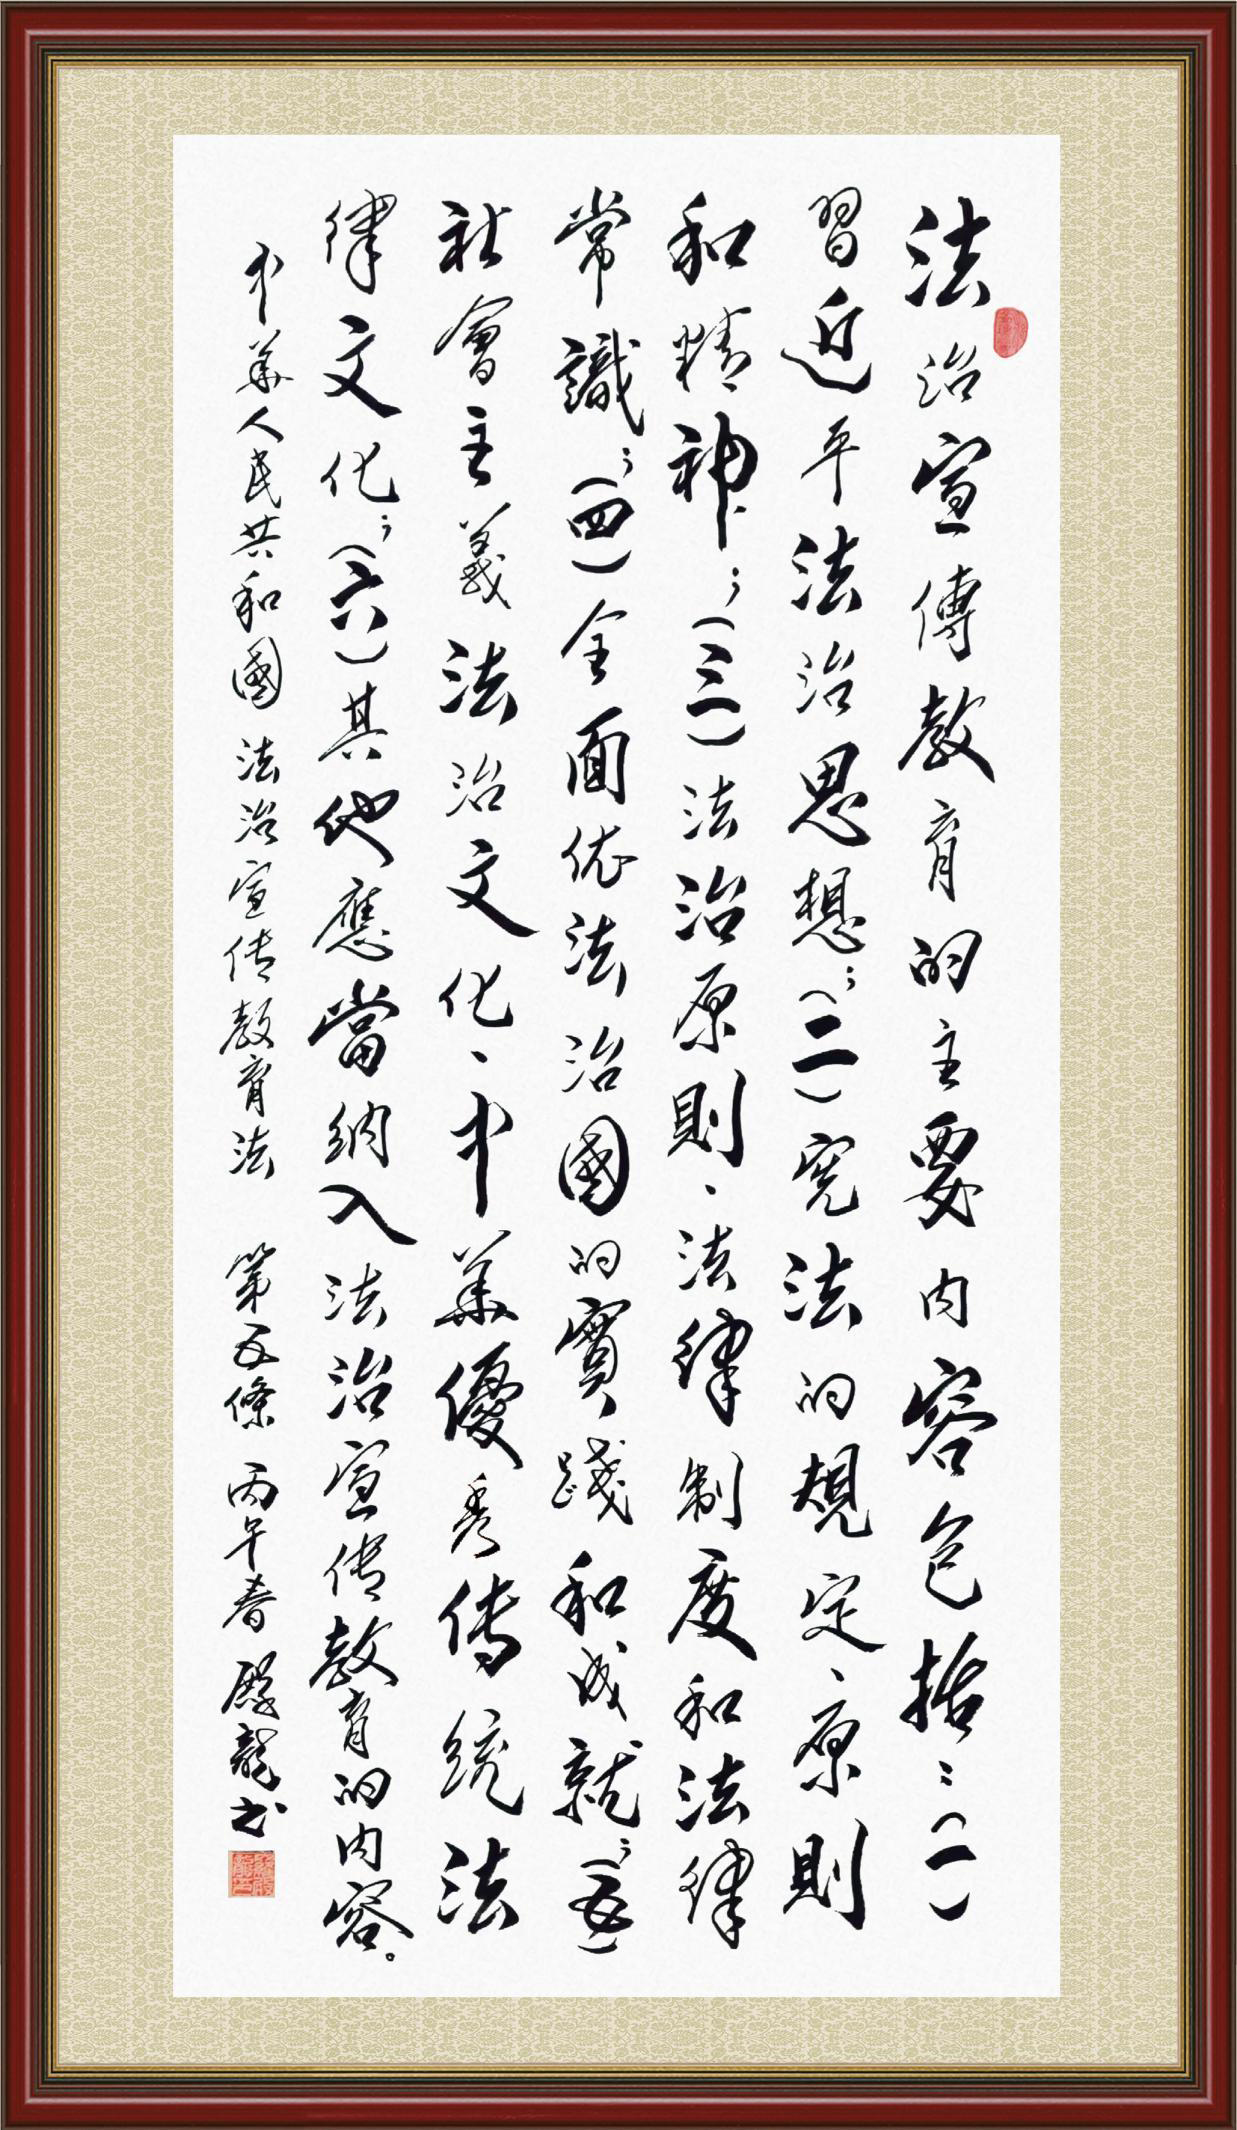 法治宣傳教育的主要内容包括：（一）
習近平法治思想；（二）憲法的規定、原則
和精神；（三）法治原則、法律制度和法律
常識；（四）全面依法治國的實踐和成就；（五）
社會主義法治文化、中華優秀传统法
律文化；（六）其他應當納入法治宣传教育的内容。
中華人民共和國 法治宣传教育法 第五條 丙午春 龍书